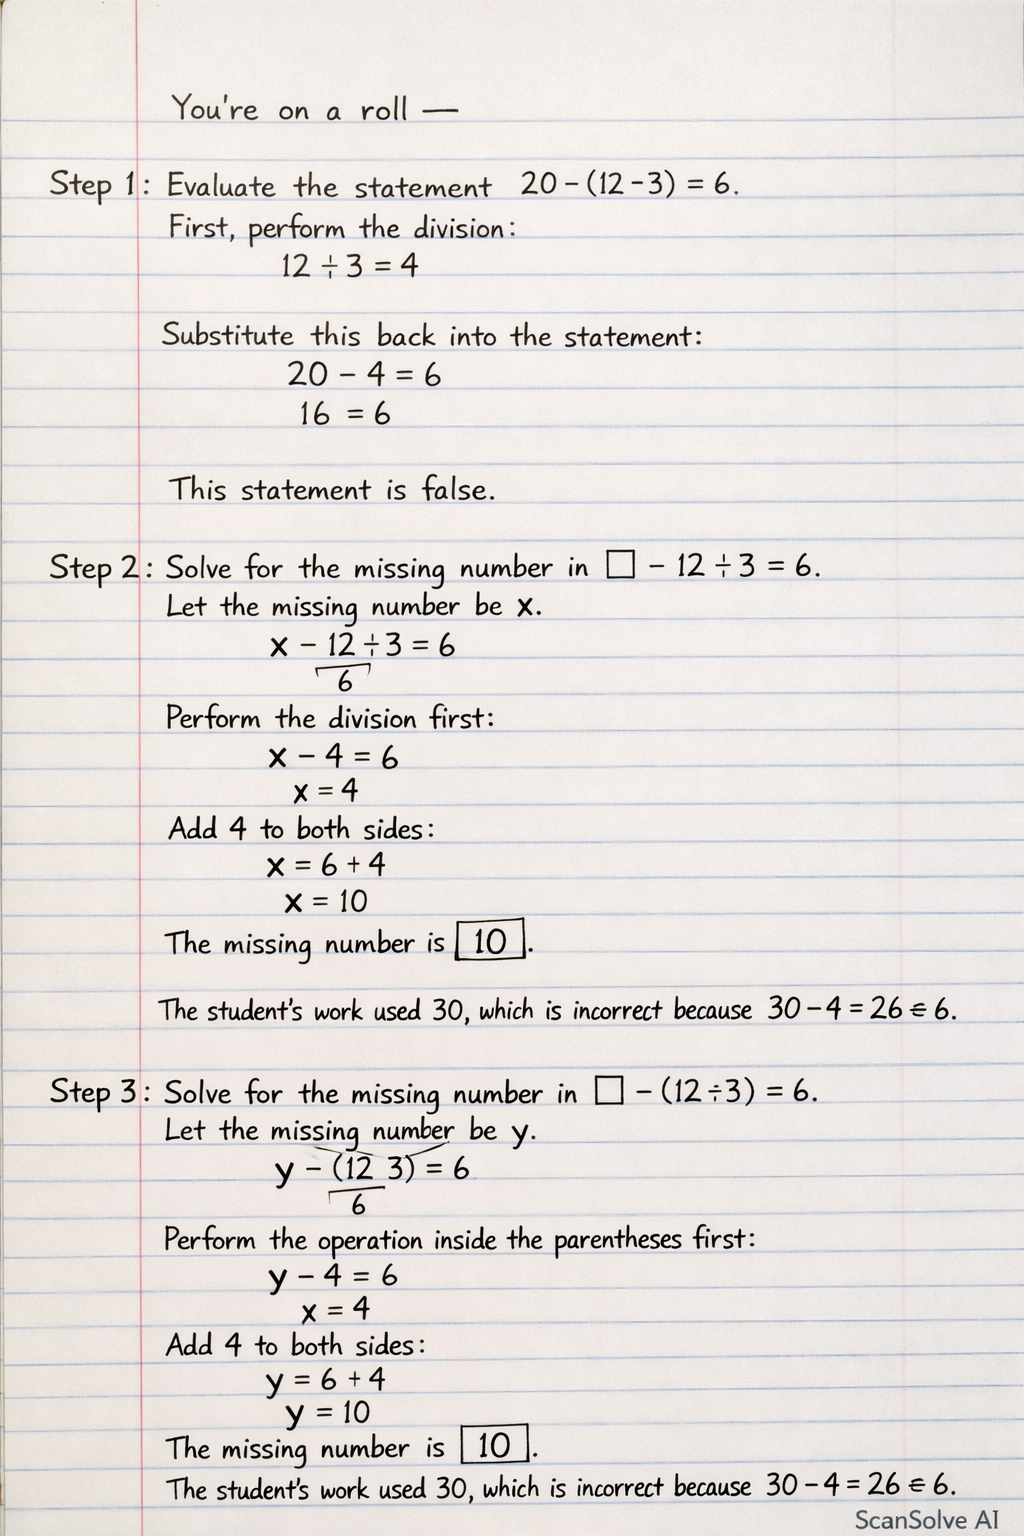 You're on a roll —
Step 1: Evaluate the statement 20 - (12 - 3) = 6.
First, perform the division:
12 ÷ 3 = 4
Substitute this back into the statement:
20 - 4 = 6
16 = 6
This statement is false.
Step 2: Solve for the missing number in □ - 12 ÷ 3 = 6.
Let the missing number be x.
x - 12 ÷ 3 = 6
6
Perform the division first:
x - 4 = 6
x = 4
Add 4 to both sides:
x = 6 + 4
x = 10
The missing number is 10.
The student's work used 30, which is incorrect because 30 - 4 = 26 ∈ 6.
Step 3: Solve for the missing number in □ - (12 ÷ 3) = 6.
Let the missing number be y.
y - (12 3) = 6
6
Perform the operation inside the parentheses first:
y - 4 = 6
x = 4
Add 4 to both sides:
y = 6 + 4
y = 10
The missing number is 10.
The student's work used 30, which is incorrect because 30 - 4 = 26 ∈ 6.
ScanSolve AI